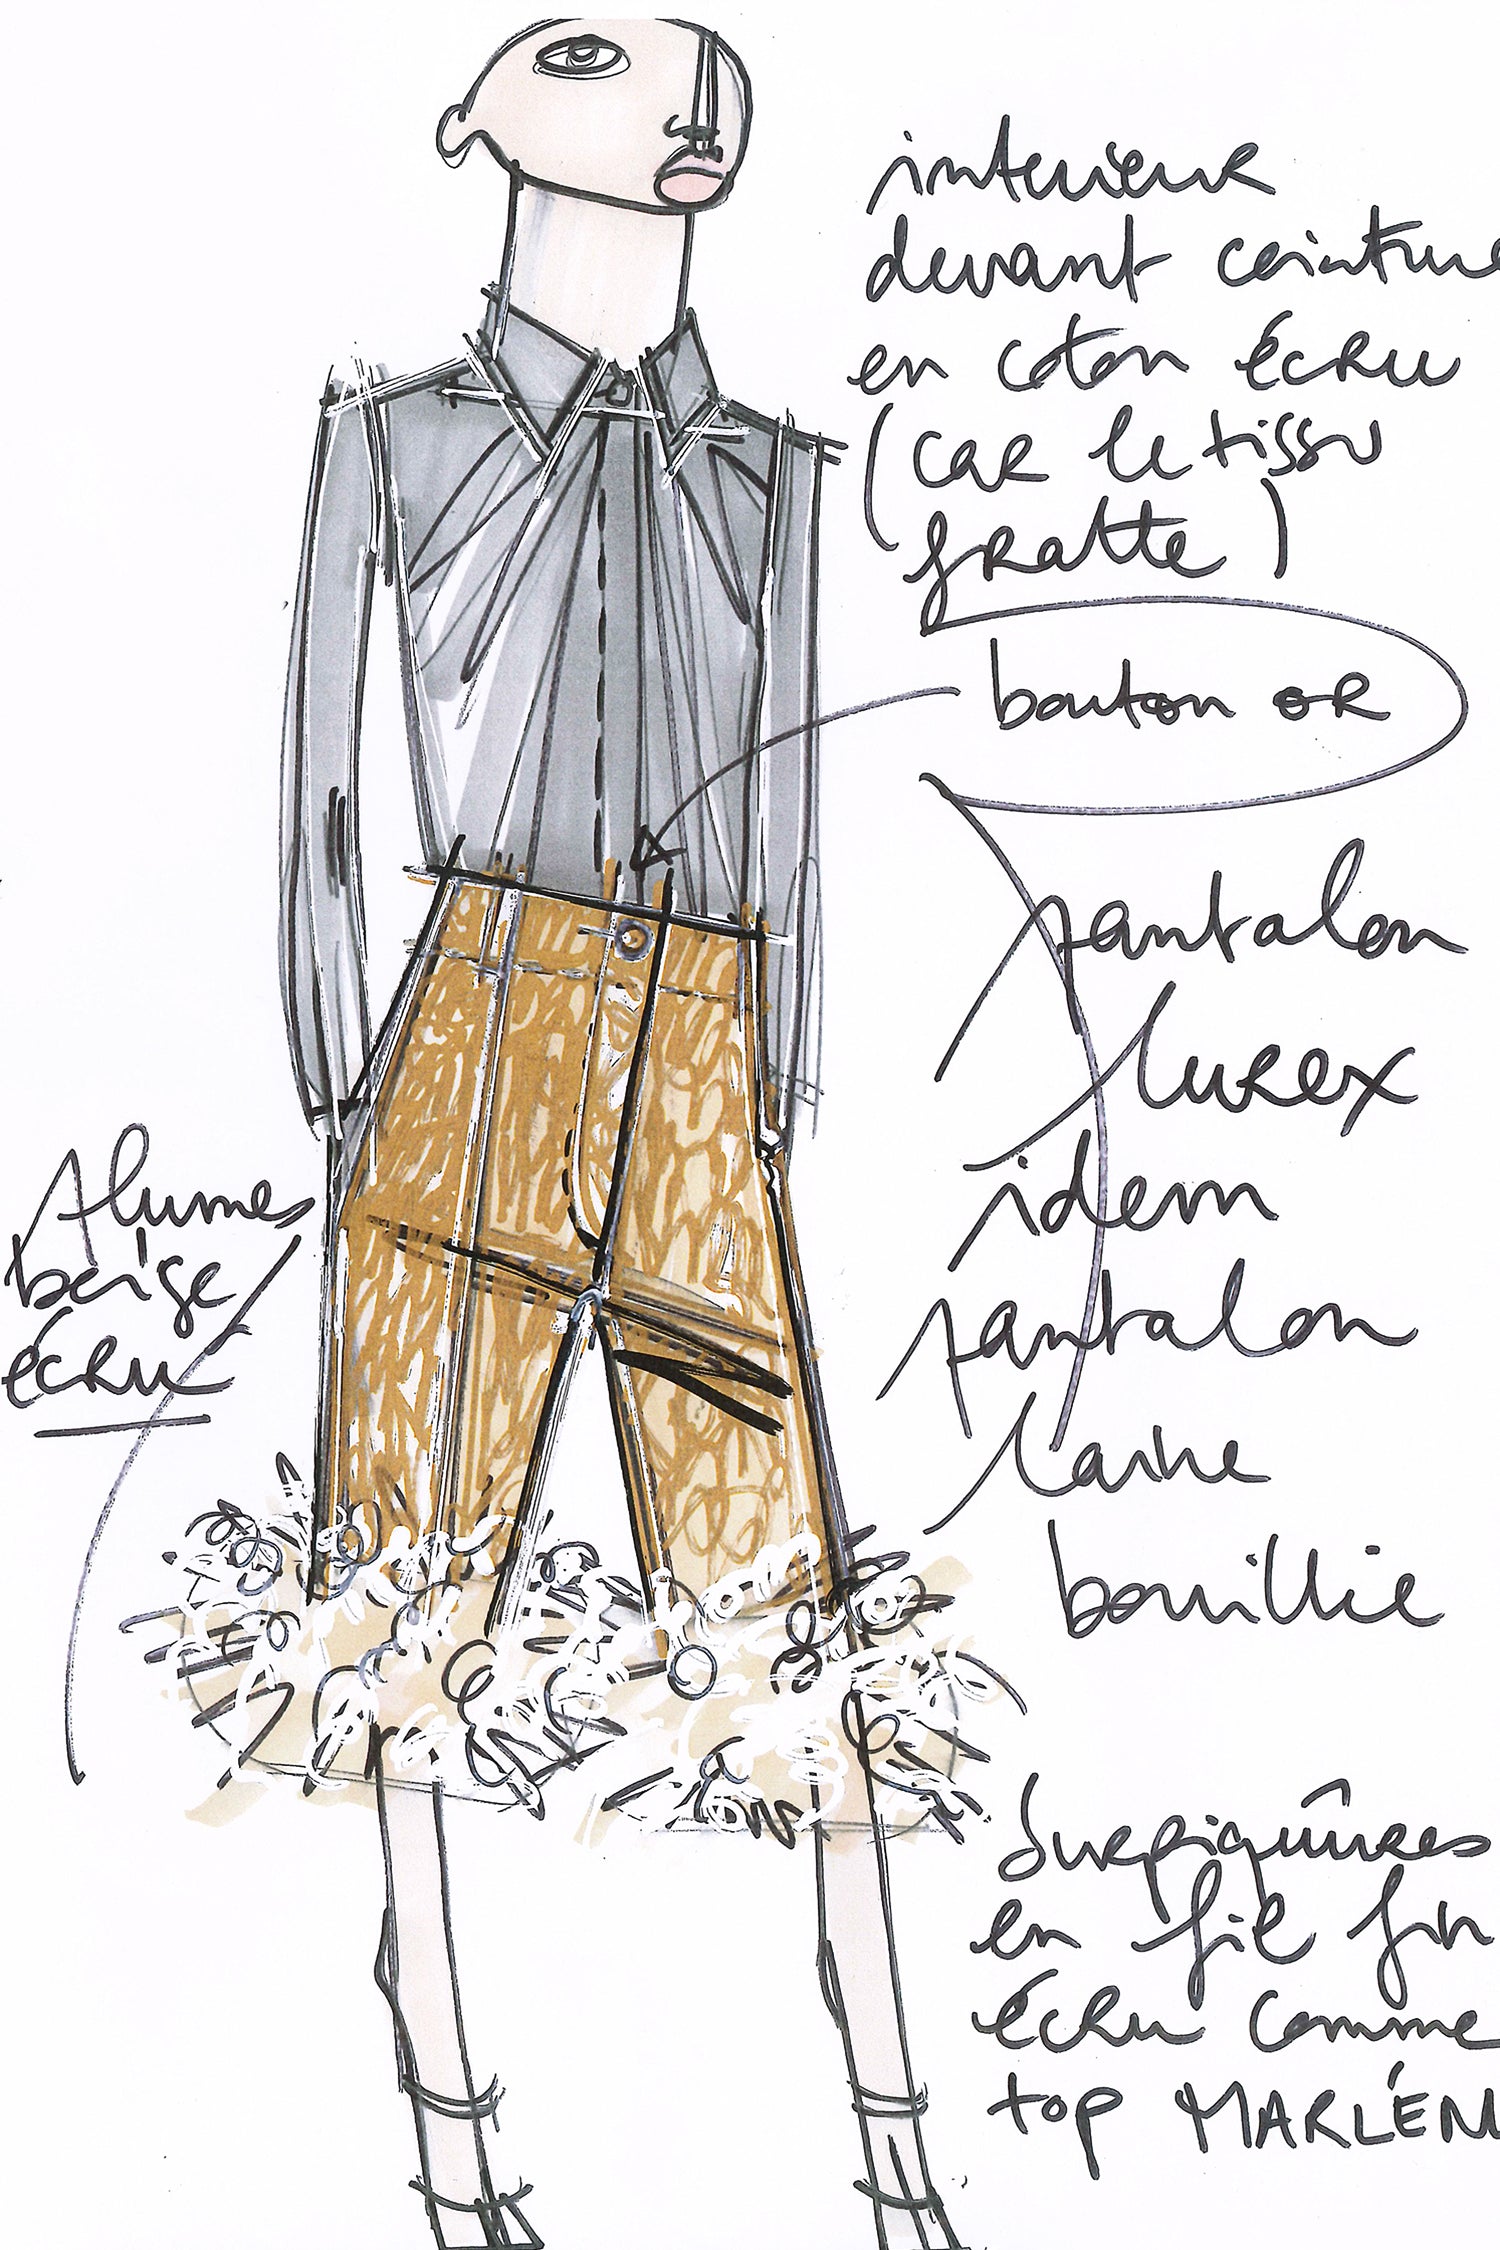 interieur
devant ceinture
en coton écru
(car le tissu
gratte)
bouton or
pantalon
lurex
idem
pantalon
laine
bouillie
plumes
beige
écru
surpiqûres
en fil fin
écru comme
top MARLÉN